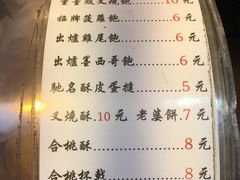 重量級叉燒飽......10 元
招牌菠蘿飽........6 元
出爐雞尾飽........6 元
出爐墨西哥飽......6 元
馳名酥皮蛋撻......5 元
叉燒酥.10 元 老婆餅.7 元
合桃酥............8 元
合桃杯戟..........8 元